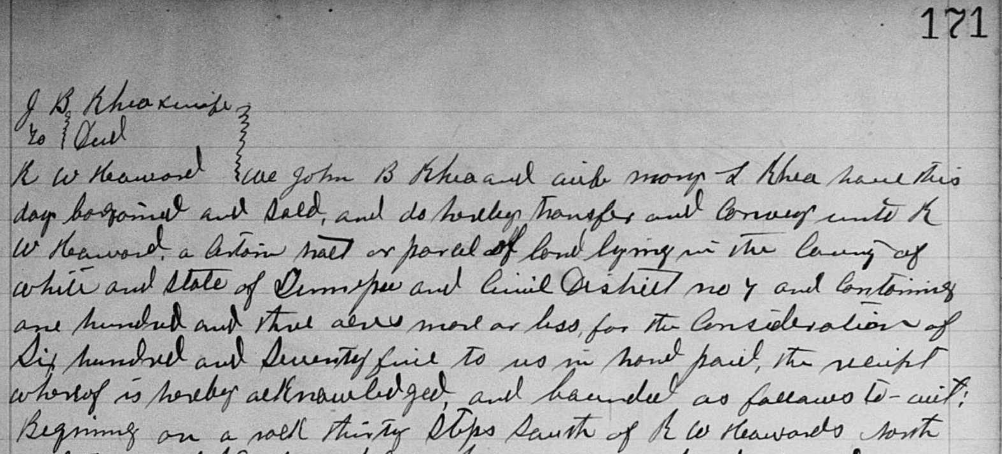 171
J B Rhea & wife
To Deed
R W Heaward We John B Rhea and wife Mary L Rhea have this
day bargained and sold, and do hereby transfer and convey unto R
W Heaward, a certain tract or parcel of land lying in the County of
white and State of Tennessee and Civil District no 7 and Containing
one hundred and three acres more or less, for the Consideration of
Six hundred and Seventy five to us in hand paid, the receipt
whereof is hereby acknowledged, and bounded as follows to-wit:
Beginning on a rock thirty Steps South of R W Heawards north